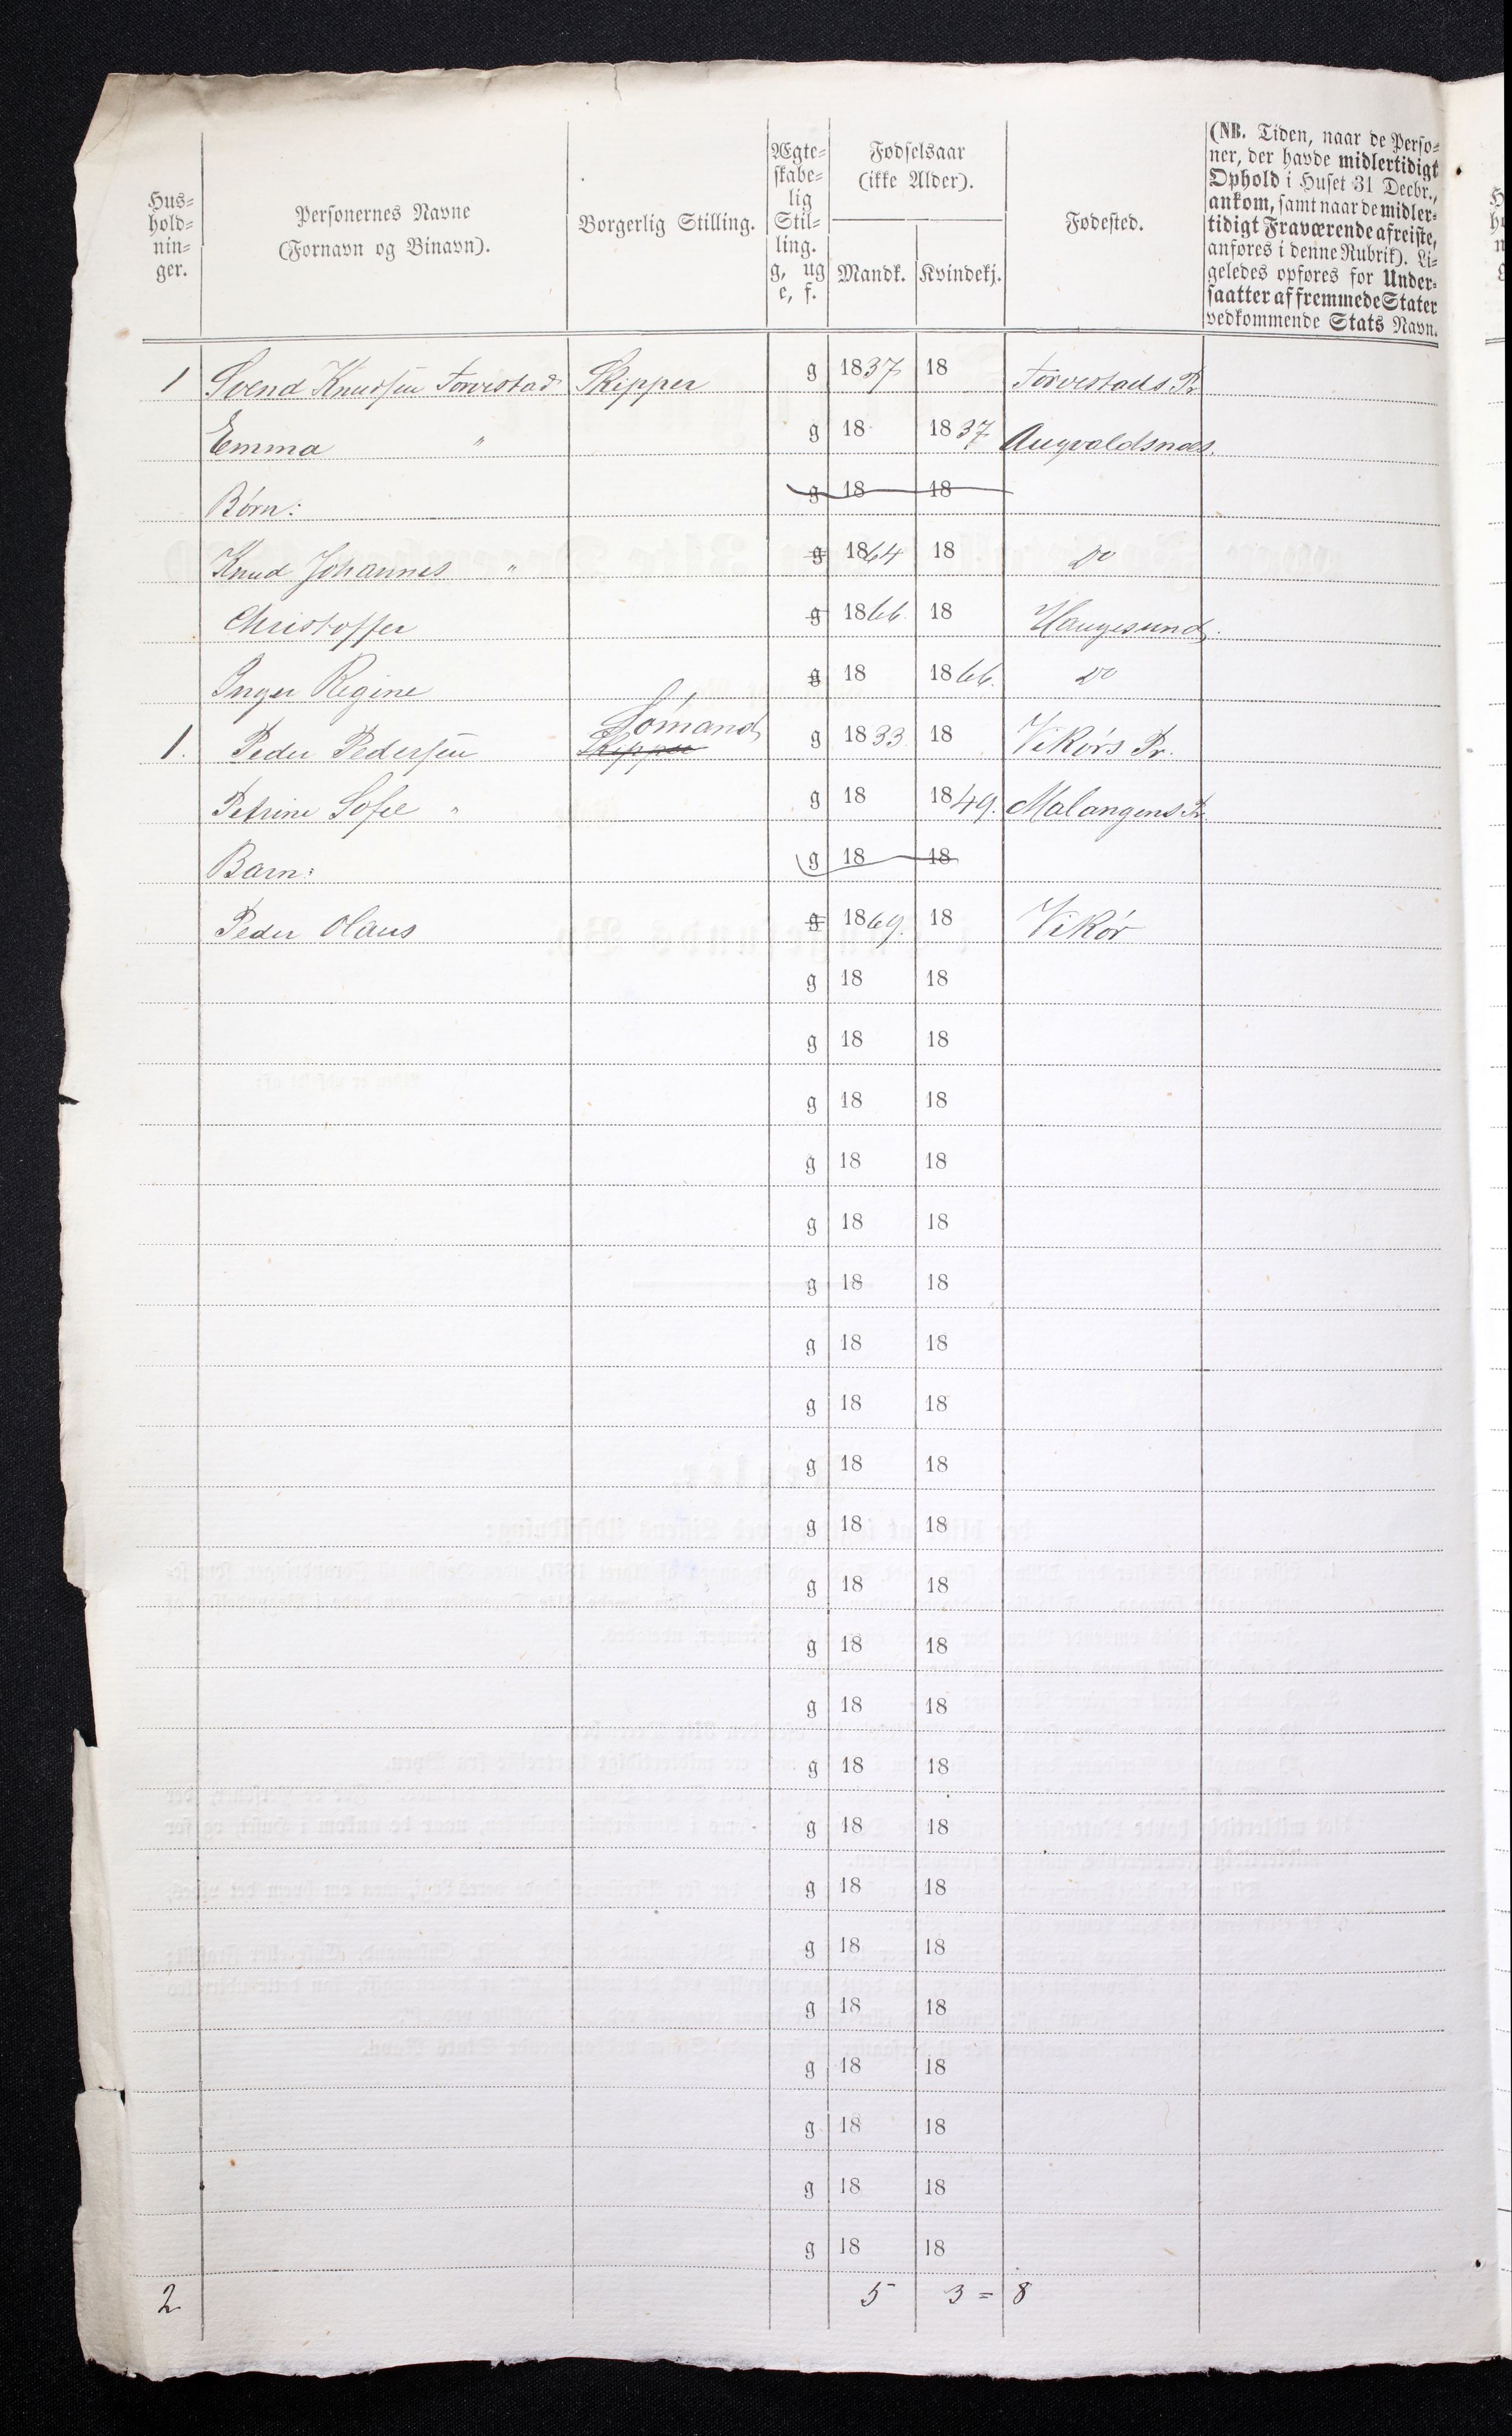 Hus-
hold-
nin-
ger.
Personernes Navne
(Fornavn og Binavn).
Borgerlig Stilling.
Ægte-
skabe-
lig
Stil-
ling.
g, ug
e, f.
Fødselsaar
(ikke Alder).
Mandk. Kvindekj.
Fødested.
(NB. Tiden, naar de Perso-
ner, der havde midlertidigt
Ophold i Huset 31 Decbr.,
ankom, samt naar de midler-
tidigt Fraværende afreiste,
anføres i denne Rubrik). Li-
geledes opføres for Under-
saatter af fremmede Stater
vedkommende Stats Navn.
1 Svend Knudsen Torvestad Skipper g 1837 18 Torvestads Pr
Emma " g 18 1837 Augvaldsnæs.
Børn: g 18 18
Knud Johannes " g 1864 18 Do
Christoffer g 1866. 18 Haugesund.
Inger Regine g 18 1866. Do
Sømand
1. Peder Pedersen Skipper g 1833 18 Vikørs Pr.
Petrine Sofie " g 18 1849. Malangens Pr.
Barn: g 18 18
Peder Olaus g 1869. 18 Vikør
g 18 18
g 18 18
g 18 18
g 18 18
g 18 18
g 18 18
g 18 18
g 18 18
g 18 18
g 18 18
g 18 18
g 18 18
g 18 18
g 18 18
g 18 18
g 18 18
g 18 18
g 18 18
g 18 18
g 18 18
g 18 18
g 18 18
2 5 3 = 8